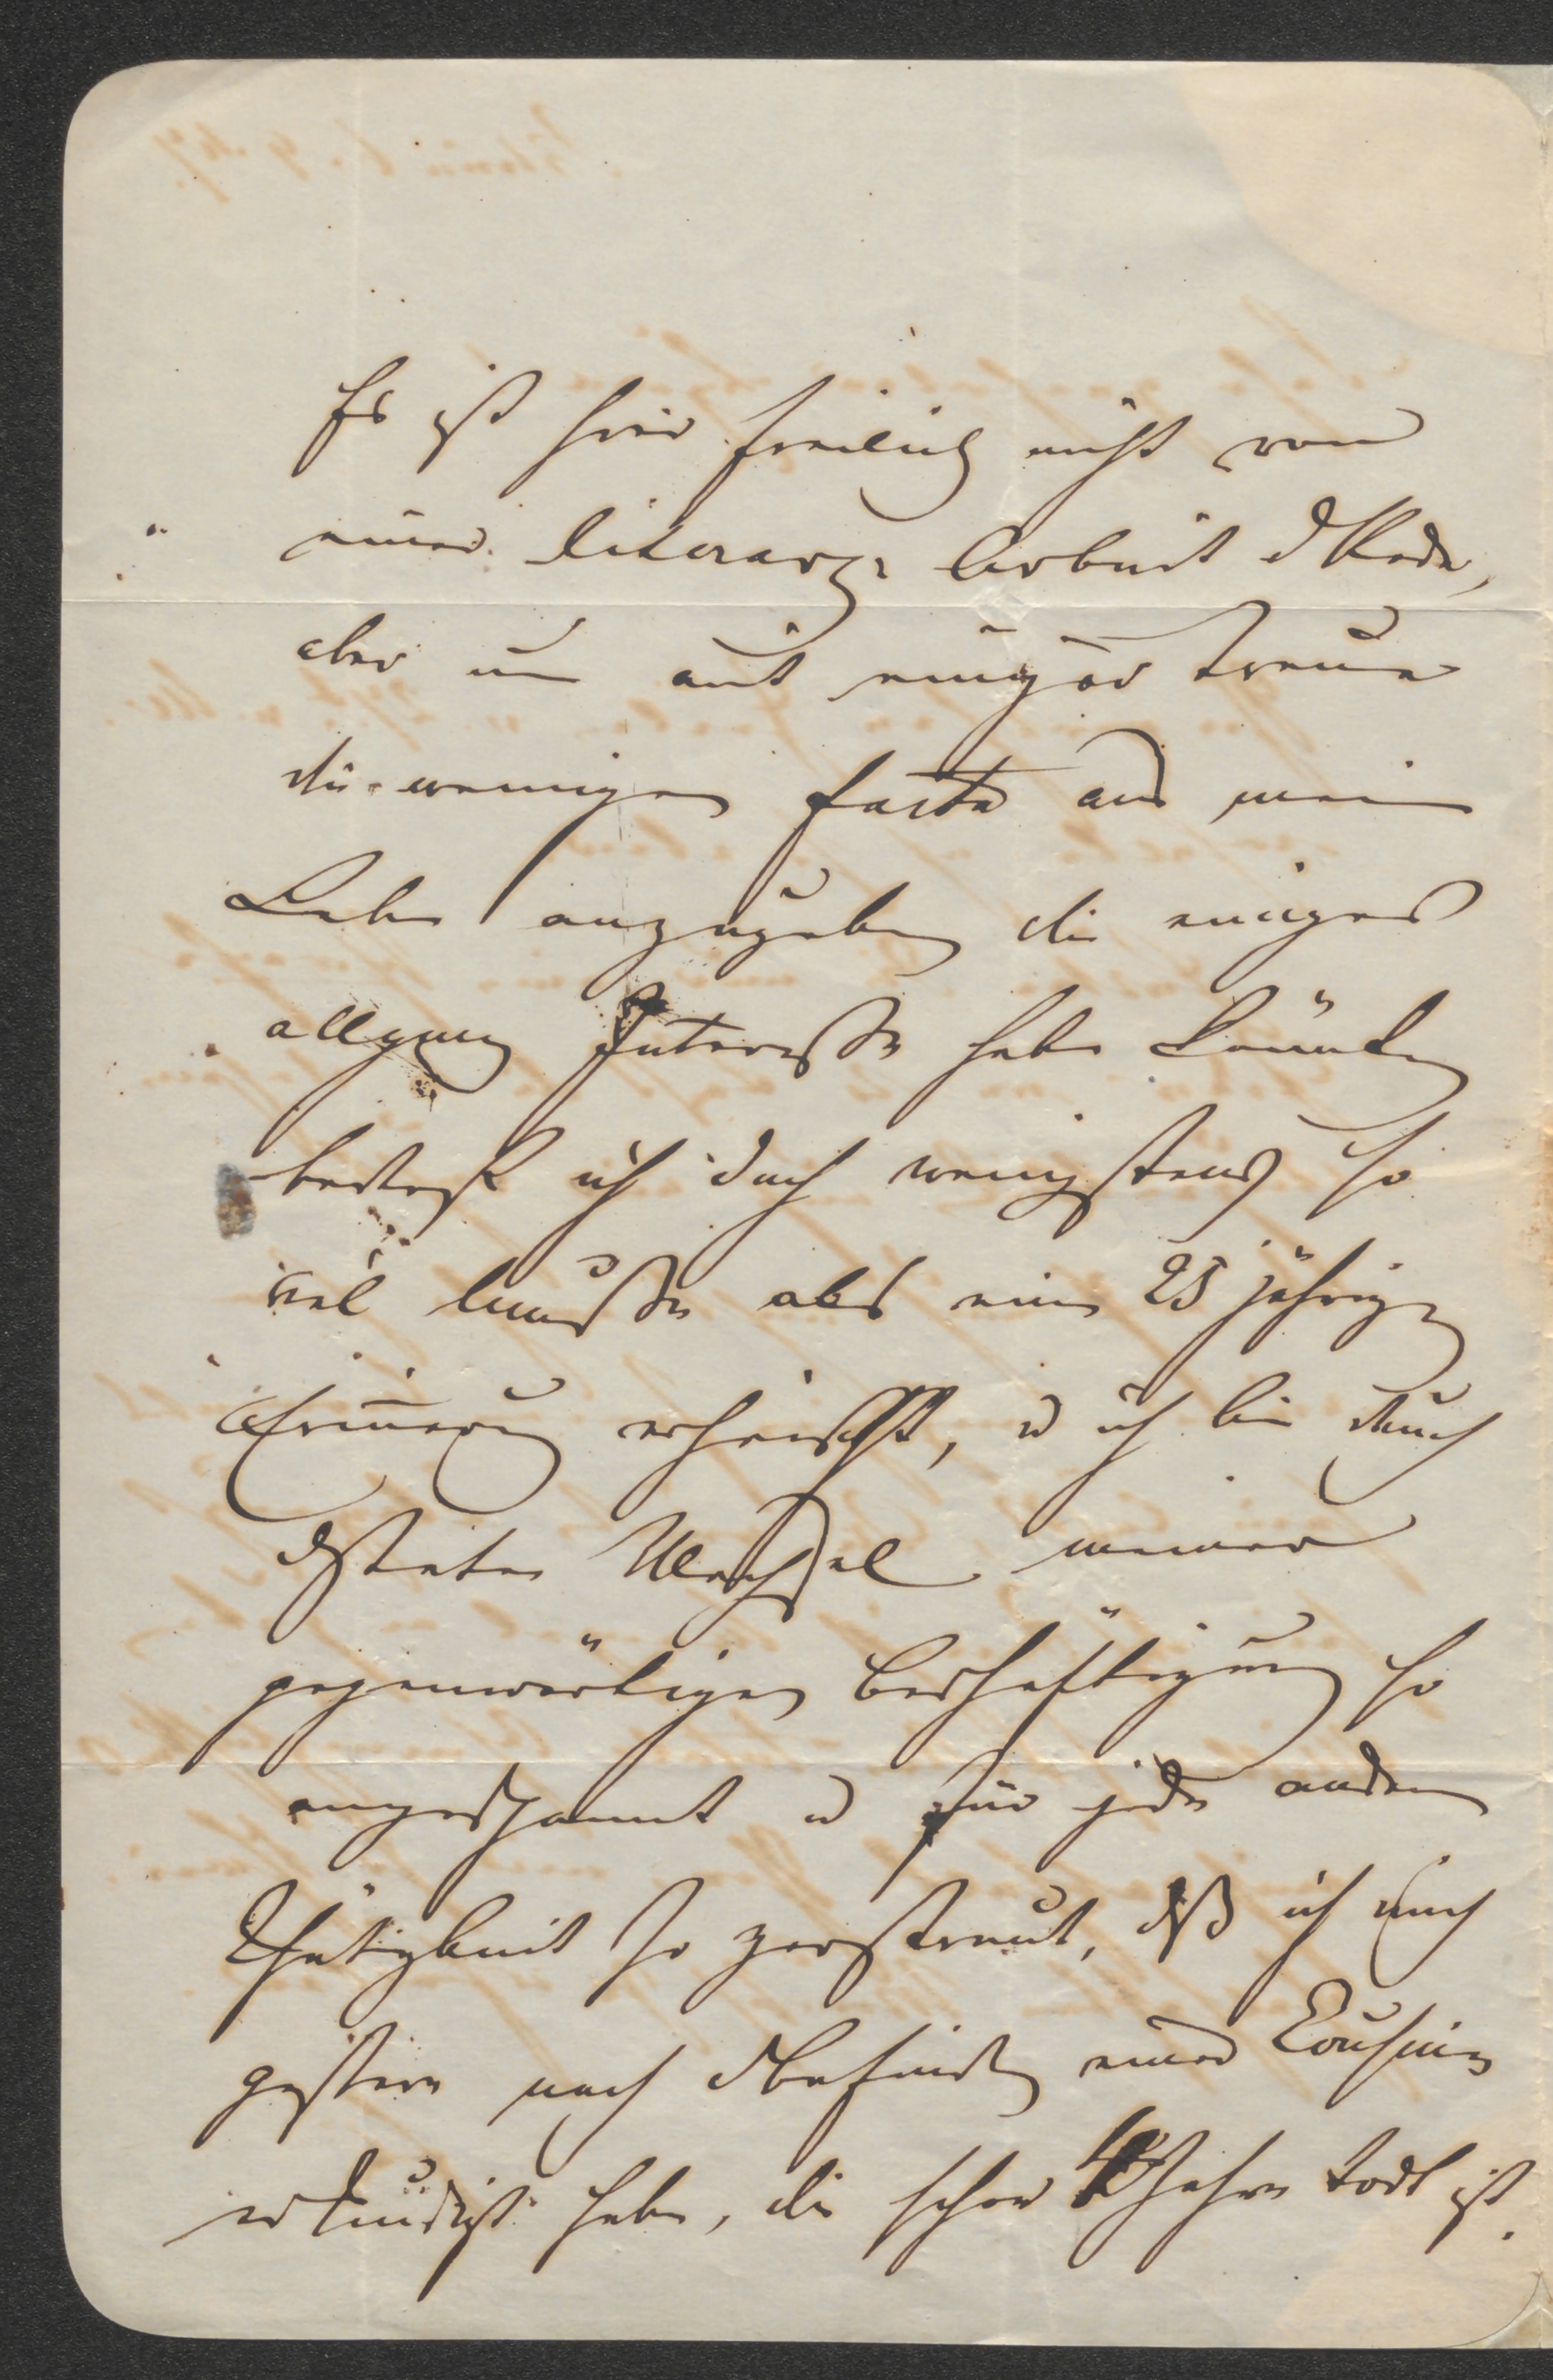 Es ist hier freilich nicht von
einer literarz. Arbeit d Rede,
aber um mit einiger Treue
die wenigen facta aus mein
Leben anzugeben die einiges
allgem Interesse habe könnten
bedarf ich doch wenigstens so
viel Muße als eine 25 jährige
Erinnerung erheischt, u ich bin durch
d steten Wechsel meiner
gegenwärtigen Beschäftigung so
angespannt u für jede andere
Thätigkeit so zerstreut, dß ich mich
gestern nach d Befinden einer Cousine
erkundigt habe, die schon Jahre todt ist.